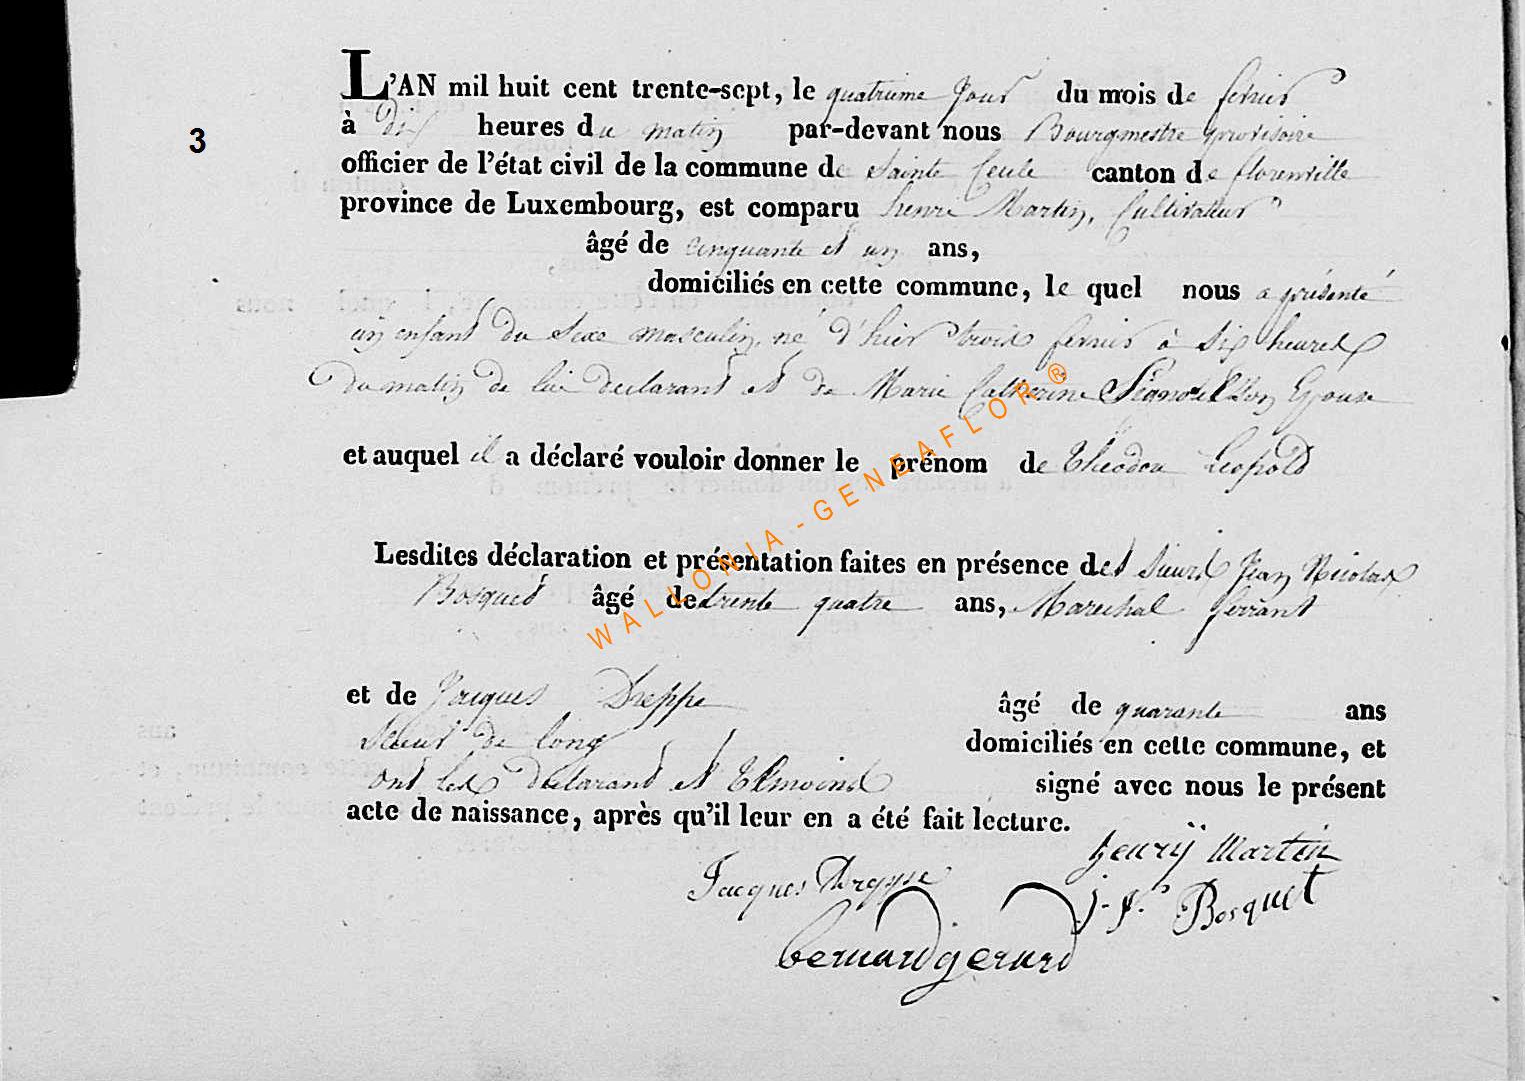 L'AN mil huit cent trente-sept, le quatrieme Jour du mois de fevrier
3
à dix heures du matin par-devant nous Bourgmestre provisoire
officier de l'état civil de la commune de Sainte Cecile canton de florenville
province de Luxembourg, est comparu henri Martin, Cultivateur
âgé de cinquante et un ans,
domiciliés en cette commune, le quel nous a présenté
un enfant du Sexe masculin, né d'hier trois fevrier à Six heures
du matin de lui declarant et de Marie Catherine Son Epouse
et auquel il a déclaré vouloir donner le prénom de Leopold
Lesdites déclaration et présentation faites en présence des Sieurs Jean Nicolas
Bosquet âgé de trente quatre ans, Marechal ferrant
et de Jacques Dreppe âgé de quarante ans
Scieur de long domiciliés en cette commune, et
ont les declarant et temoins signé avec nous le présent
acte de naissance, après qu'il leur en a été fait lecture.
henrÿ Martin
Jacques
j. n. Bosquet
bernard gerard
WALLONIA - GENEAFLOR ®